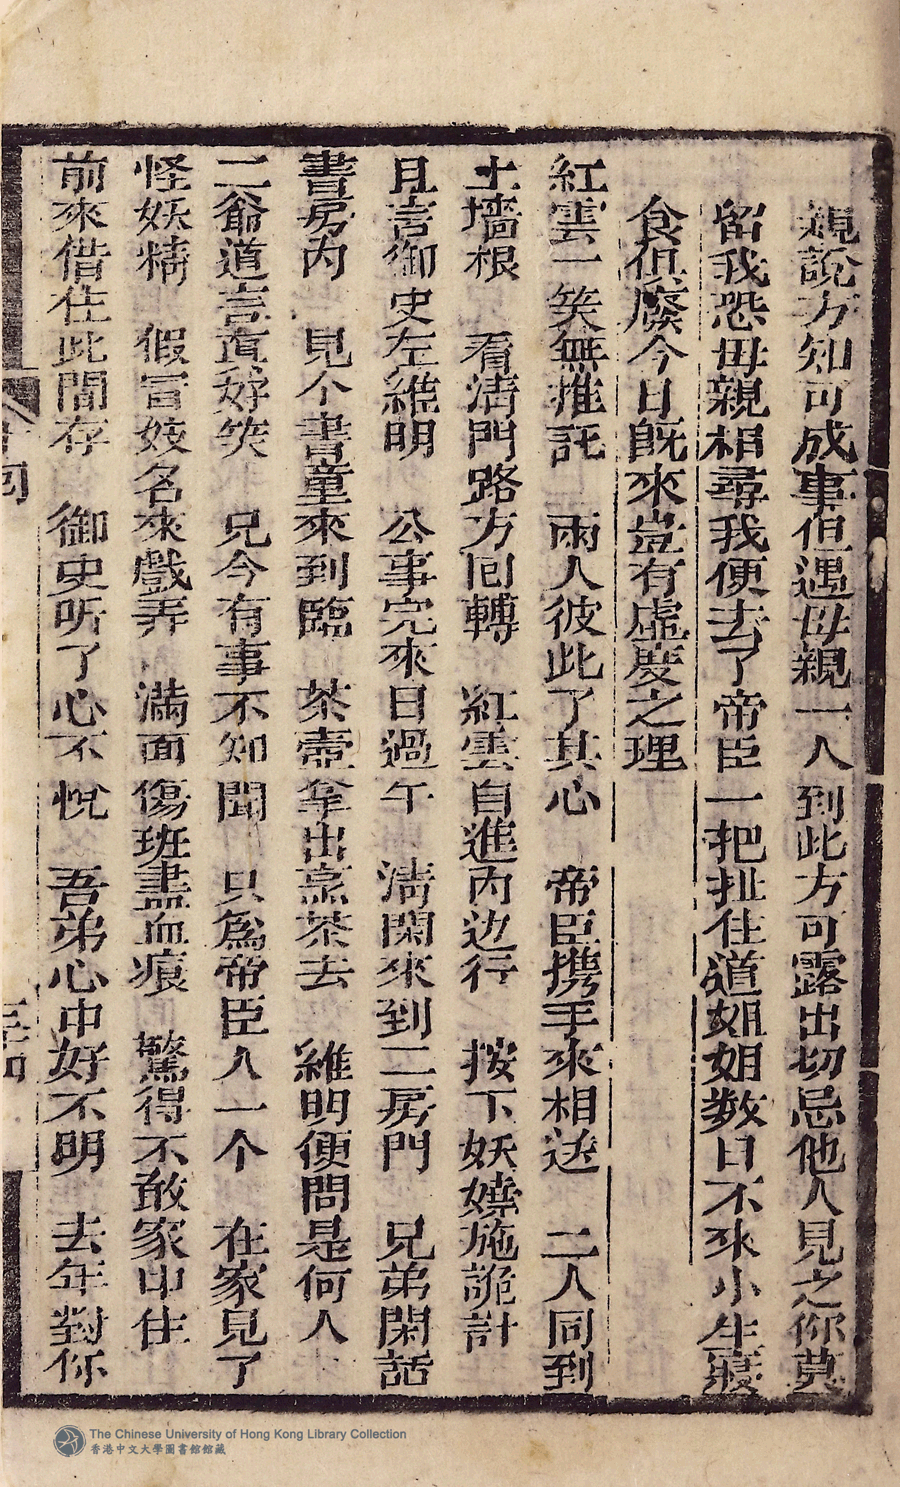 親說方知可成事但遇母親一人到此方可露出切忌他人見之你莫
留我恐母親相尋我便去了帝臣一把扯住道姐姐数日不來小生寢
食俱廢今日既來豈有虛度之理
紅雲一笑無推託　兩人彼此了其心　帝臣携手來相送　二人同到
土墻根　看清門路方回轉　紅雲自進內边行　按下妖嬈施詭計
且言御史左維明　公事完來日過午　淸閑來到二房門　兄弟閑話
書房內　見个書童來到臨　茶壺拿出烹茶去　維明便問是何人
二爺道言真好笑　兄今有事不知聞　只爲帝臣人一个　在家見了
怪妖精　假冒妓名來戲弄　滿面傷班盡血痕　驚得不敢家中住
前來借住此間存　御史听了心不悅　吾弟心中好不明　去年對你
The Chinese University of Hong Kong Library Collection
香港中文大學圖書館館藏